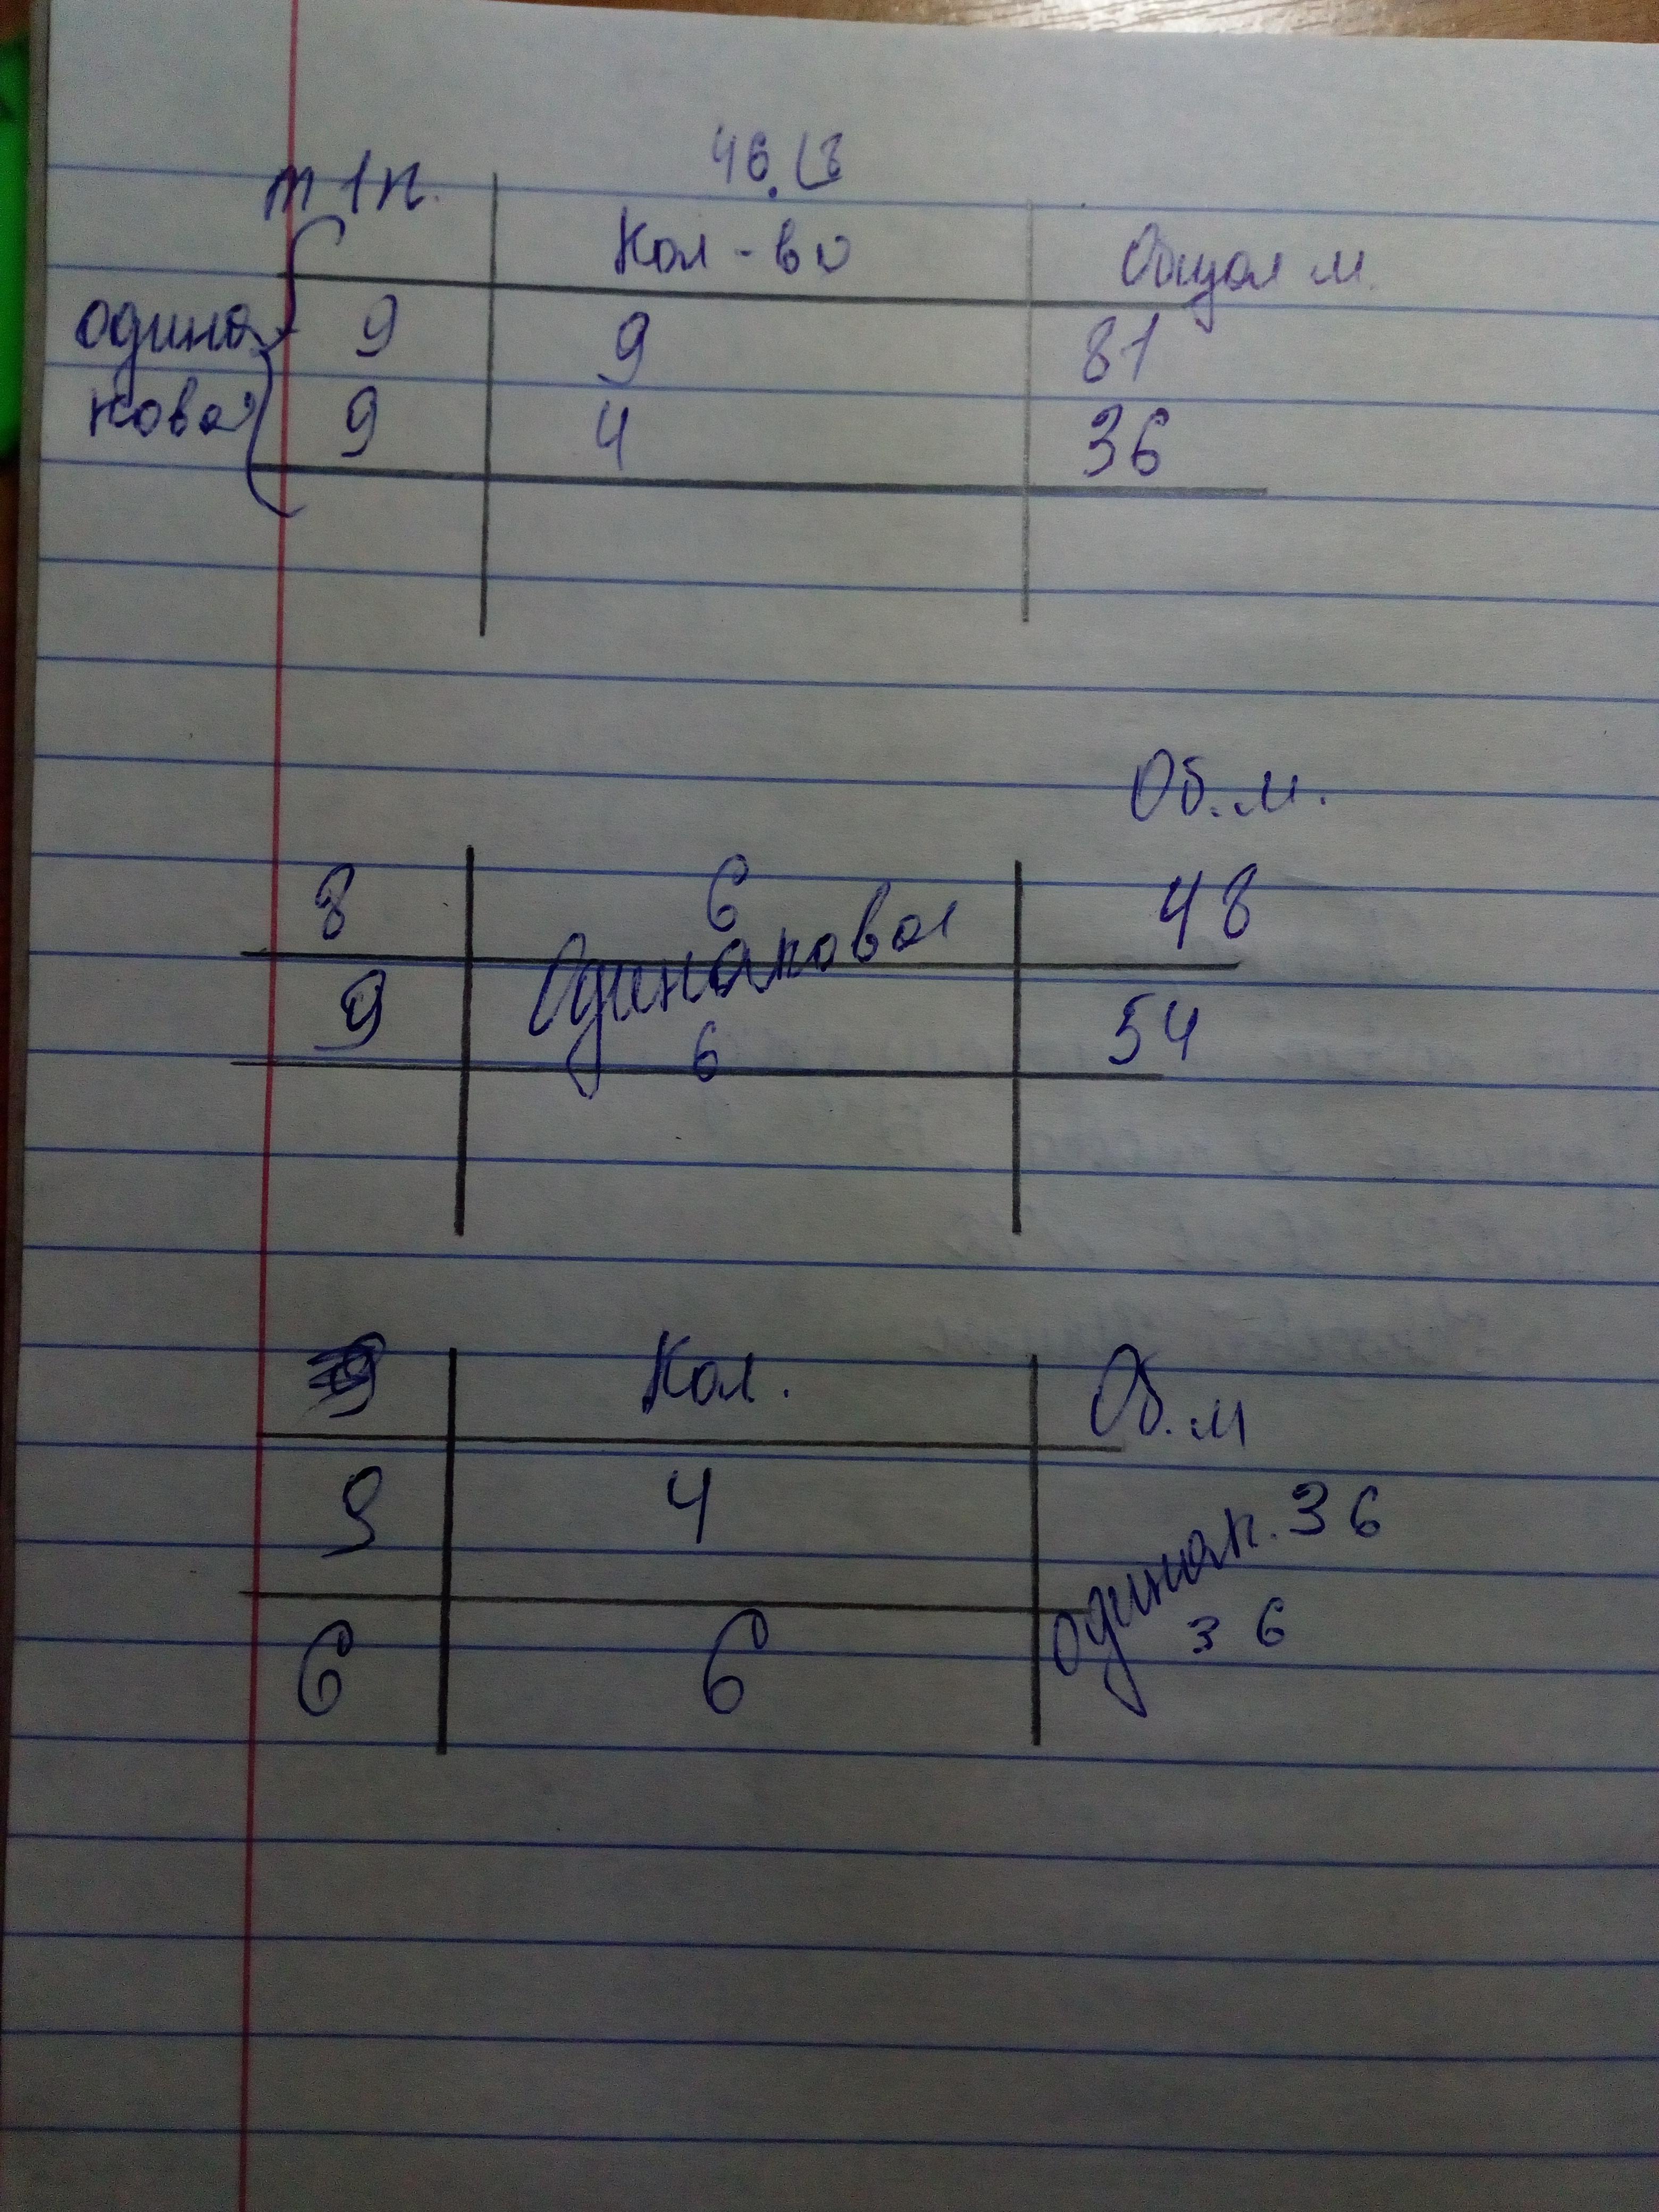 m 1п.
Кол-во
Общая м.
одина
9 9 81
ковая
9 4 36
Об.м.
8 6 48
Одинаковая
9 6 54
Кол. Об.м
9 4 36
одинак.
6 6 36